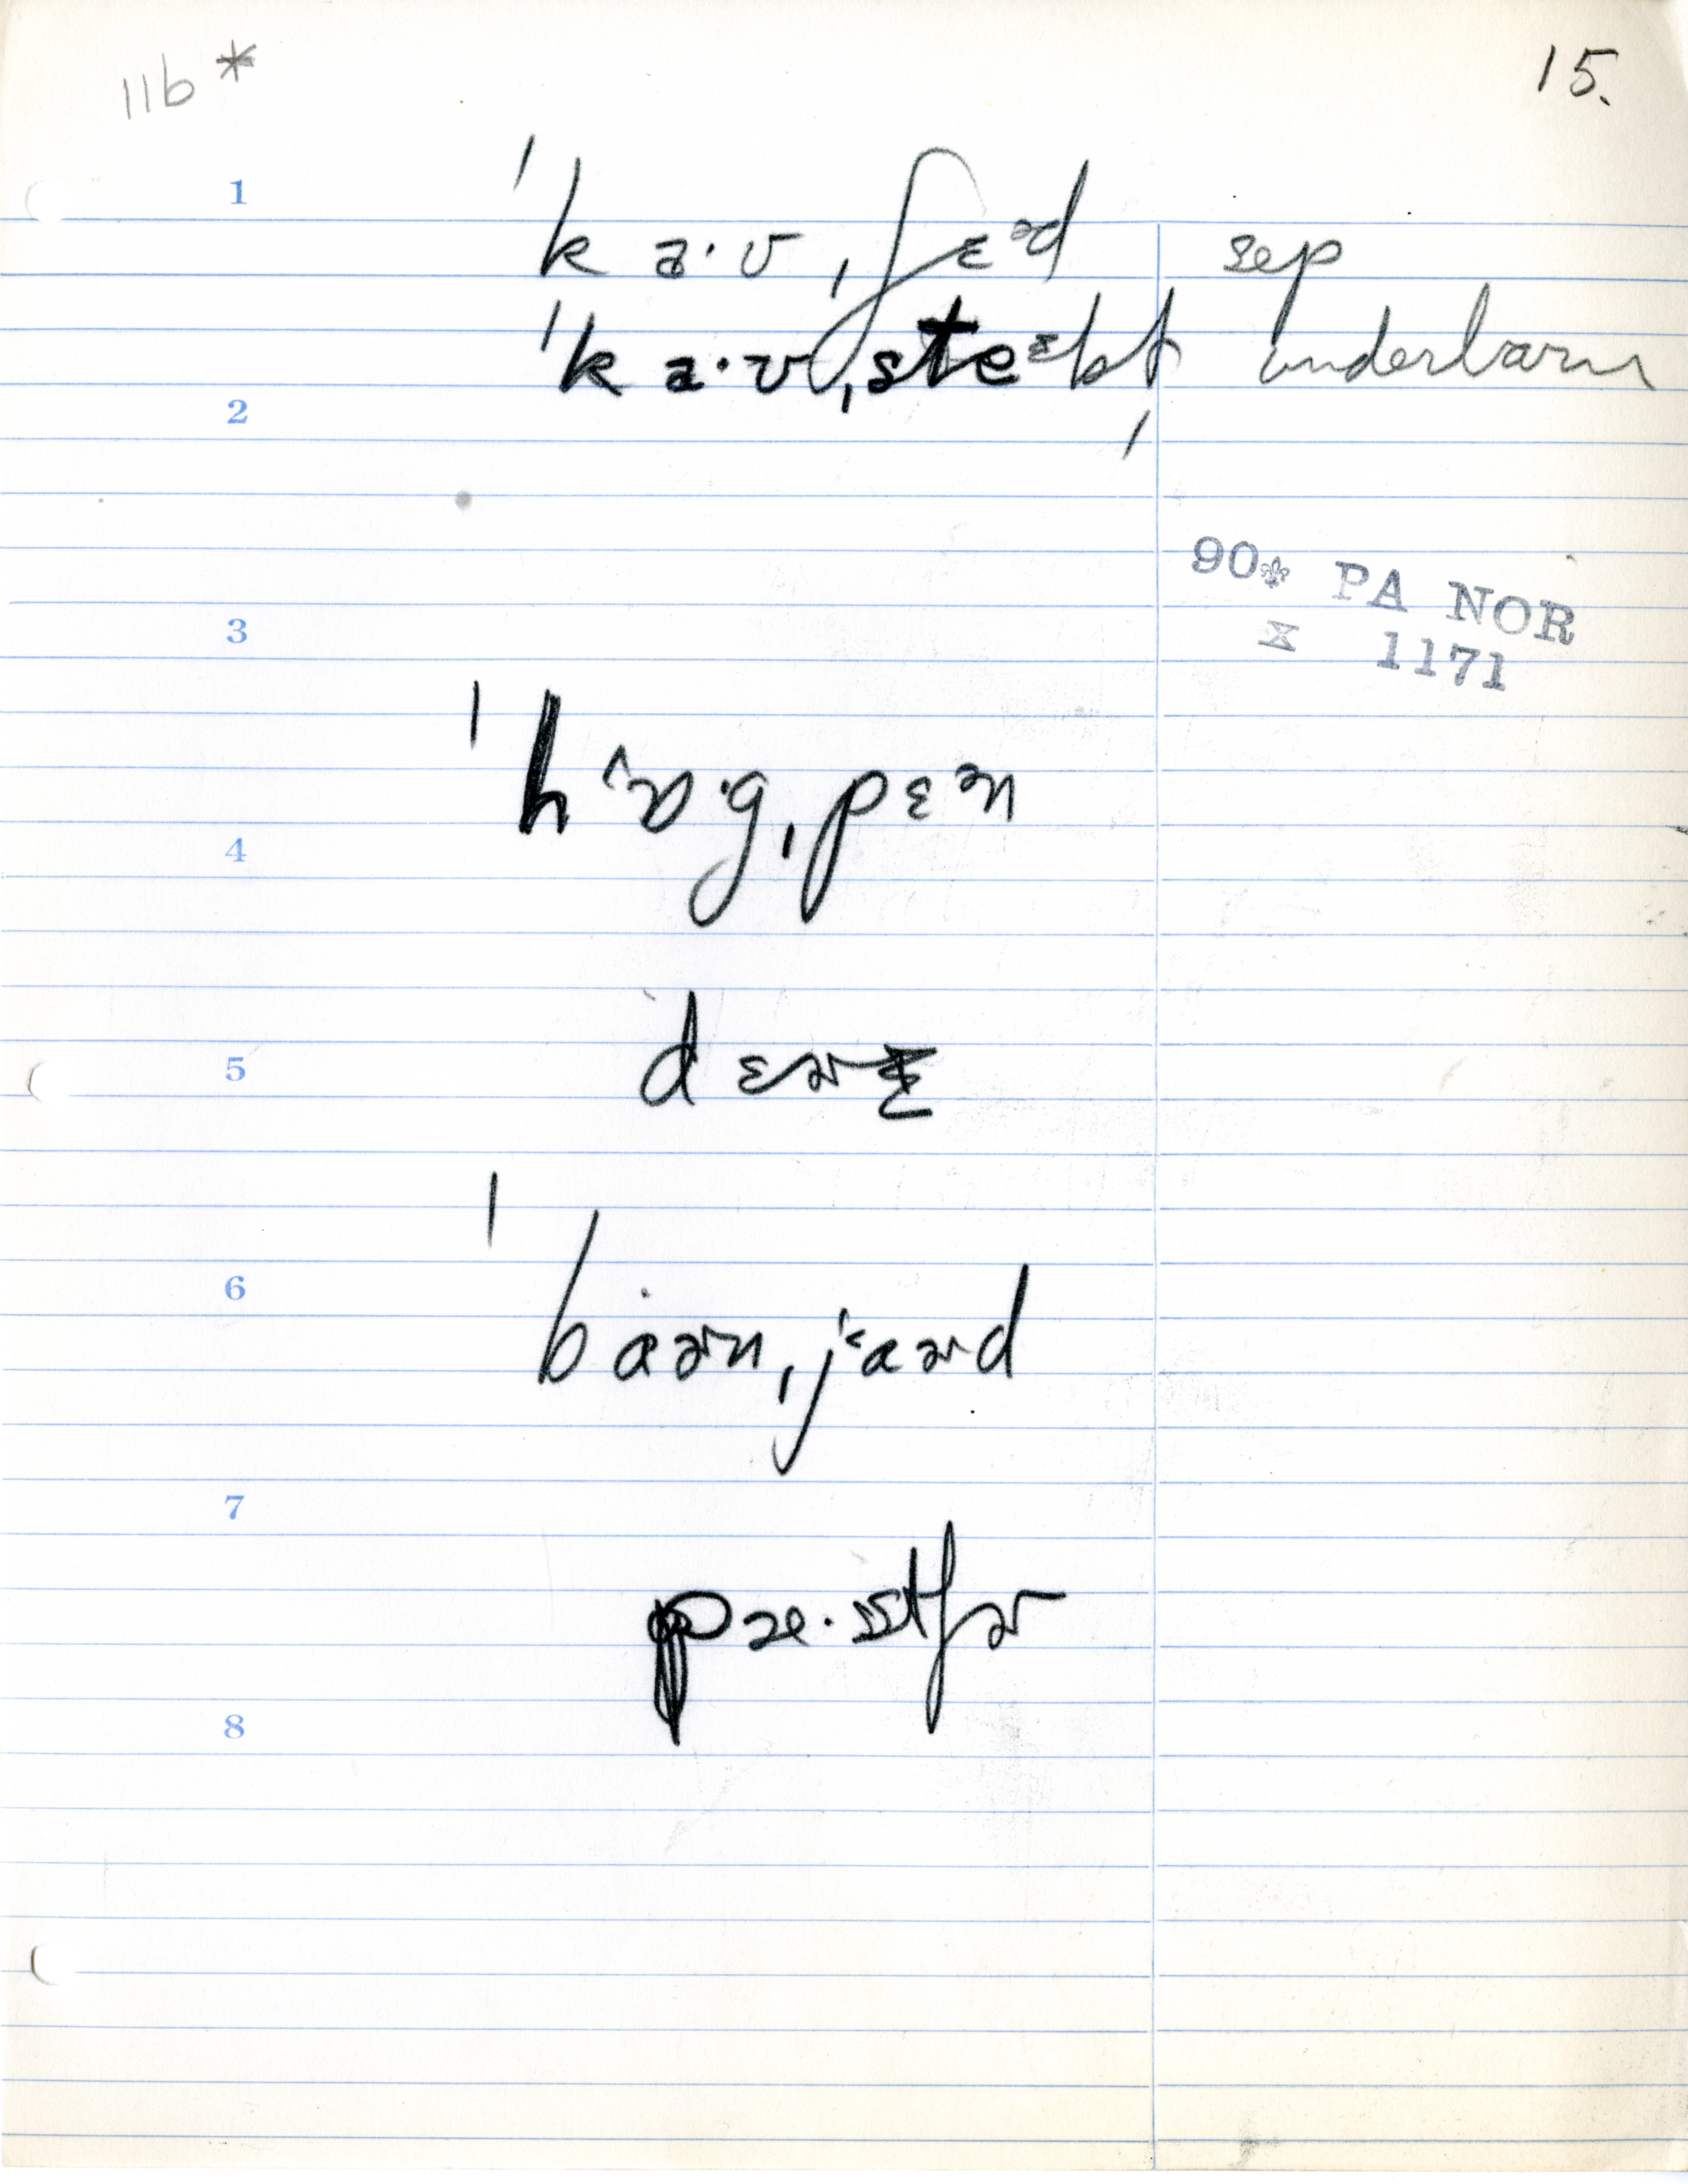 11b * 15.
1 ˈk a·v ˌʃɛəd sep
ˈk a·v ˌsteᵋbl̩ underbarn
2
90⚜ PA NOR
X 1171
3
ˈhˆɒ·g ˌpɛən
4
5 dɛɚ
6 ˈbaɚn ˌjᵋaɚd
7
pæ·stʃɚ
8